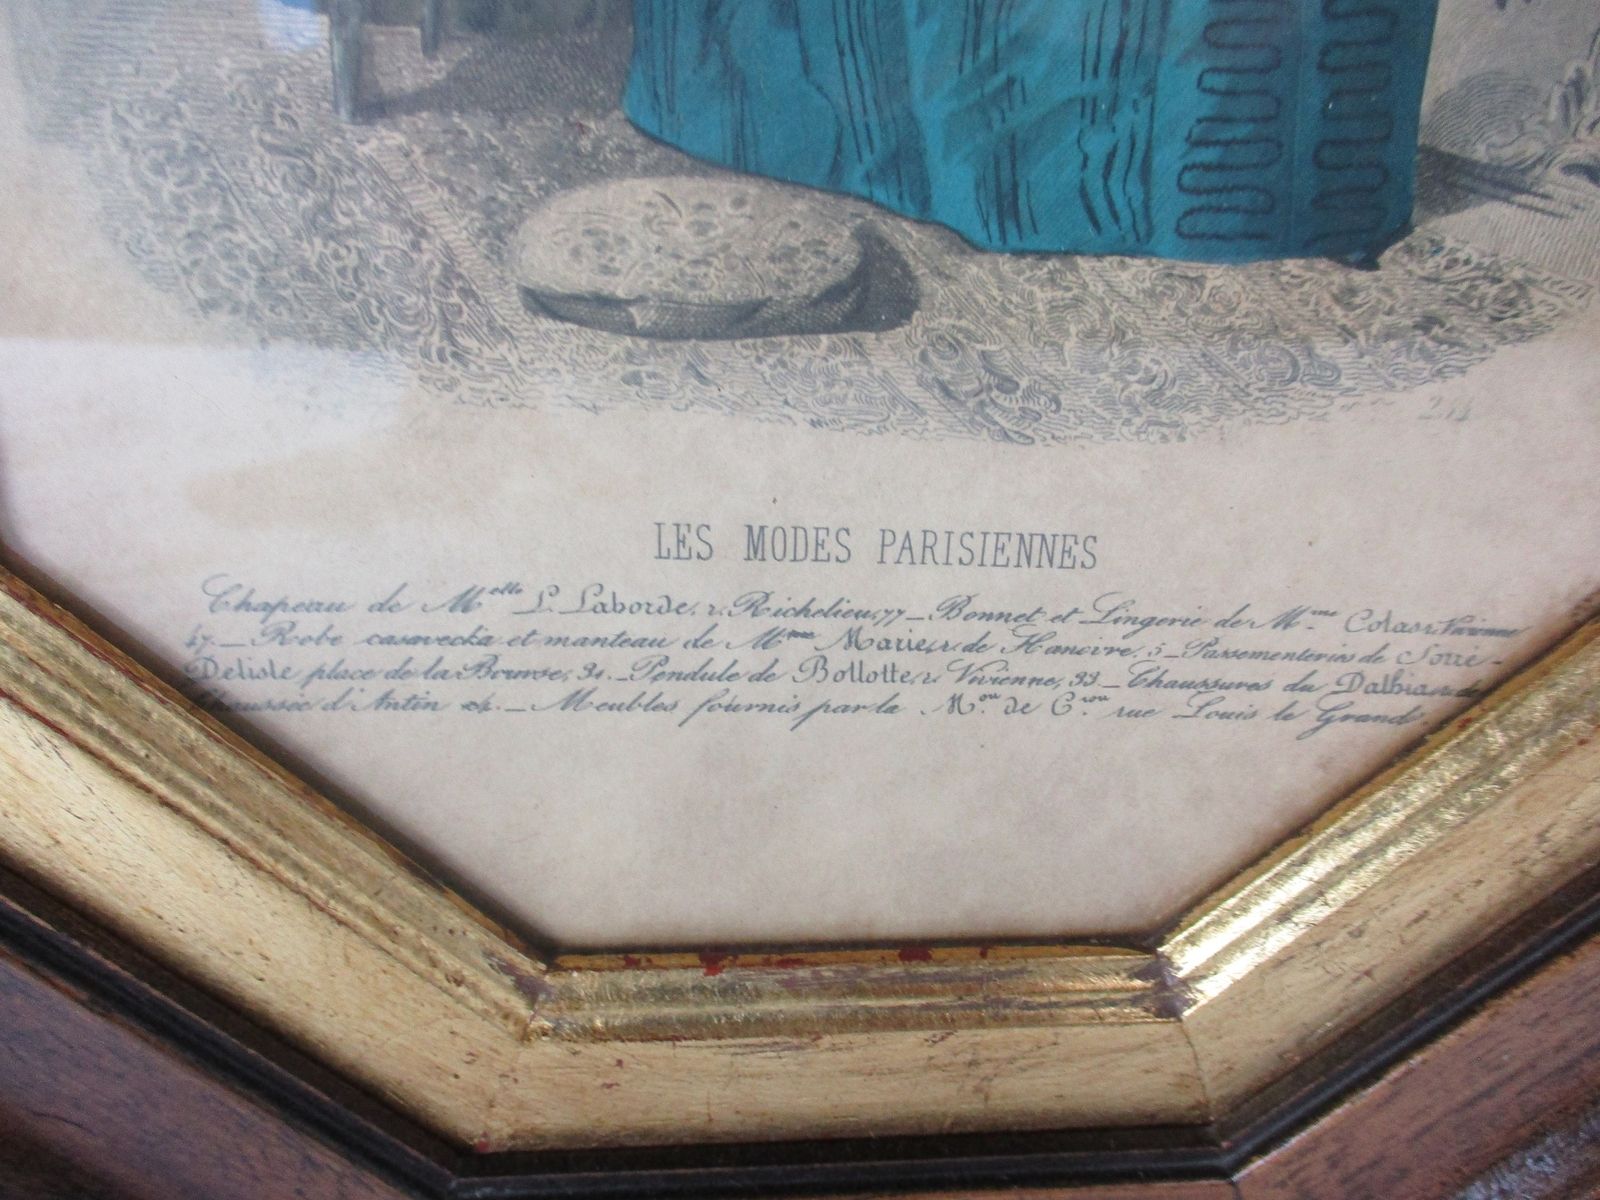 214
LES MODES PARISIENNES
Chapeau de Melle L. Laborde, r. Richelieu, 77 _ Bonnet et Lingerie de Mme Colas r. Vivienne
47. _ Robe casavecka et manteau de Mme Marie, r. de Hanovre, 5 _ Passementeries de Sorré-
Delisle place de la Bourse, 31. _ Pendule de Bollotte, r. Vivienne, 33 _ Chaussures du Dalbia de
Chaussée d'Antin _ Meubles fournis par la Mon de Cion rue Louis le Grand